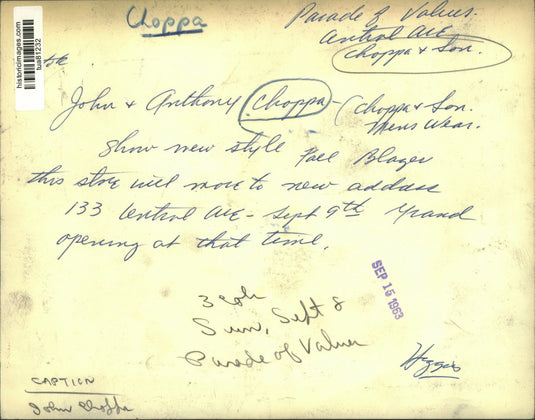 Choppa
Parade of Values
Central Ave
Choppa & Son.
historicimages.com
tua81232
John & Anthony Choppa - (Choppa & Son.
Mens Wear.
Show new style Fall Blazer
this store will move to new address
133 Central Ave - Sept 9th Grand
opening at that time.
SEP 15 1963
3 col
Sun, Sept 8
Parade of Values
Higgins
CAPTION
John Choppa